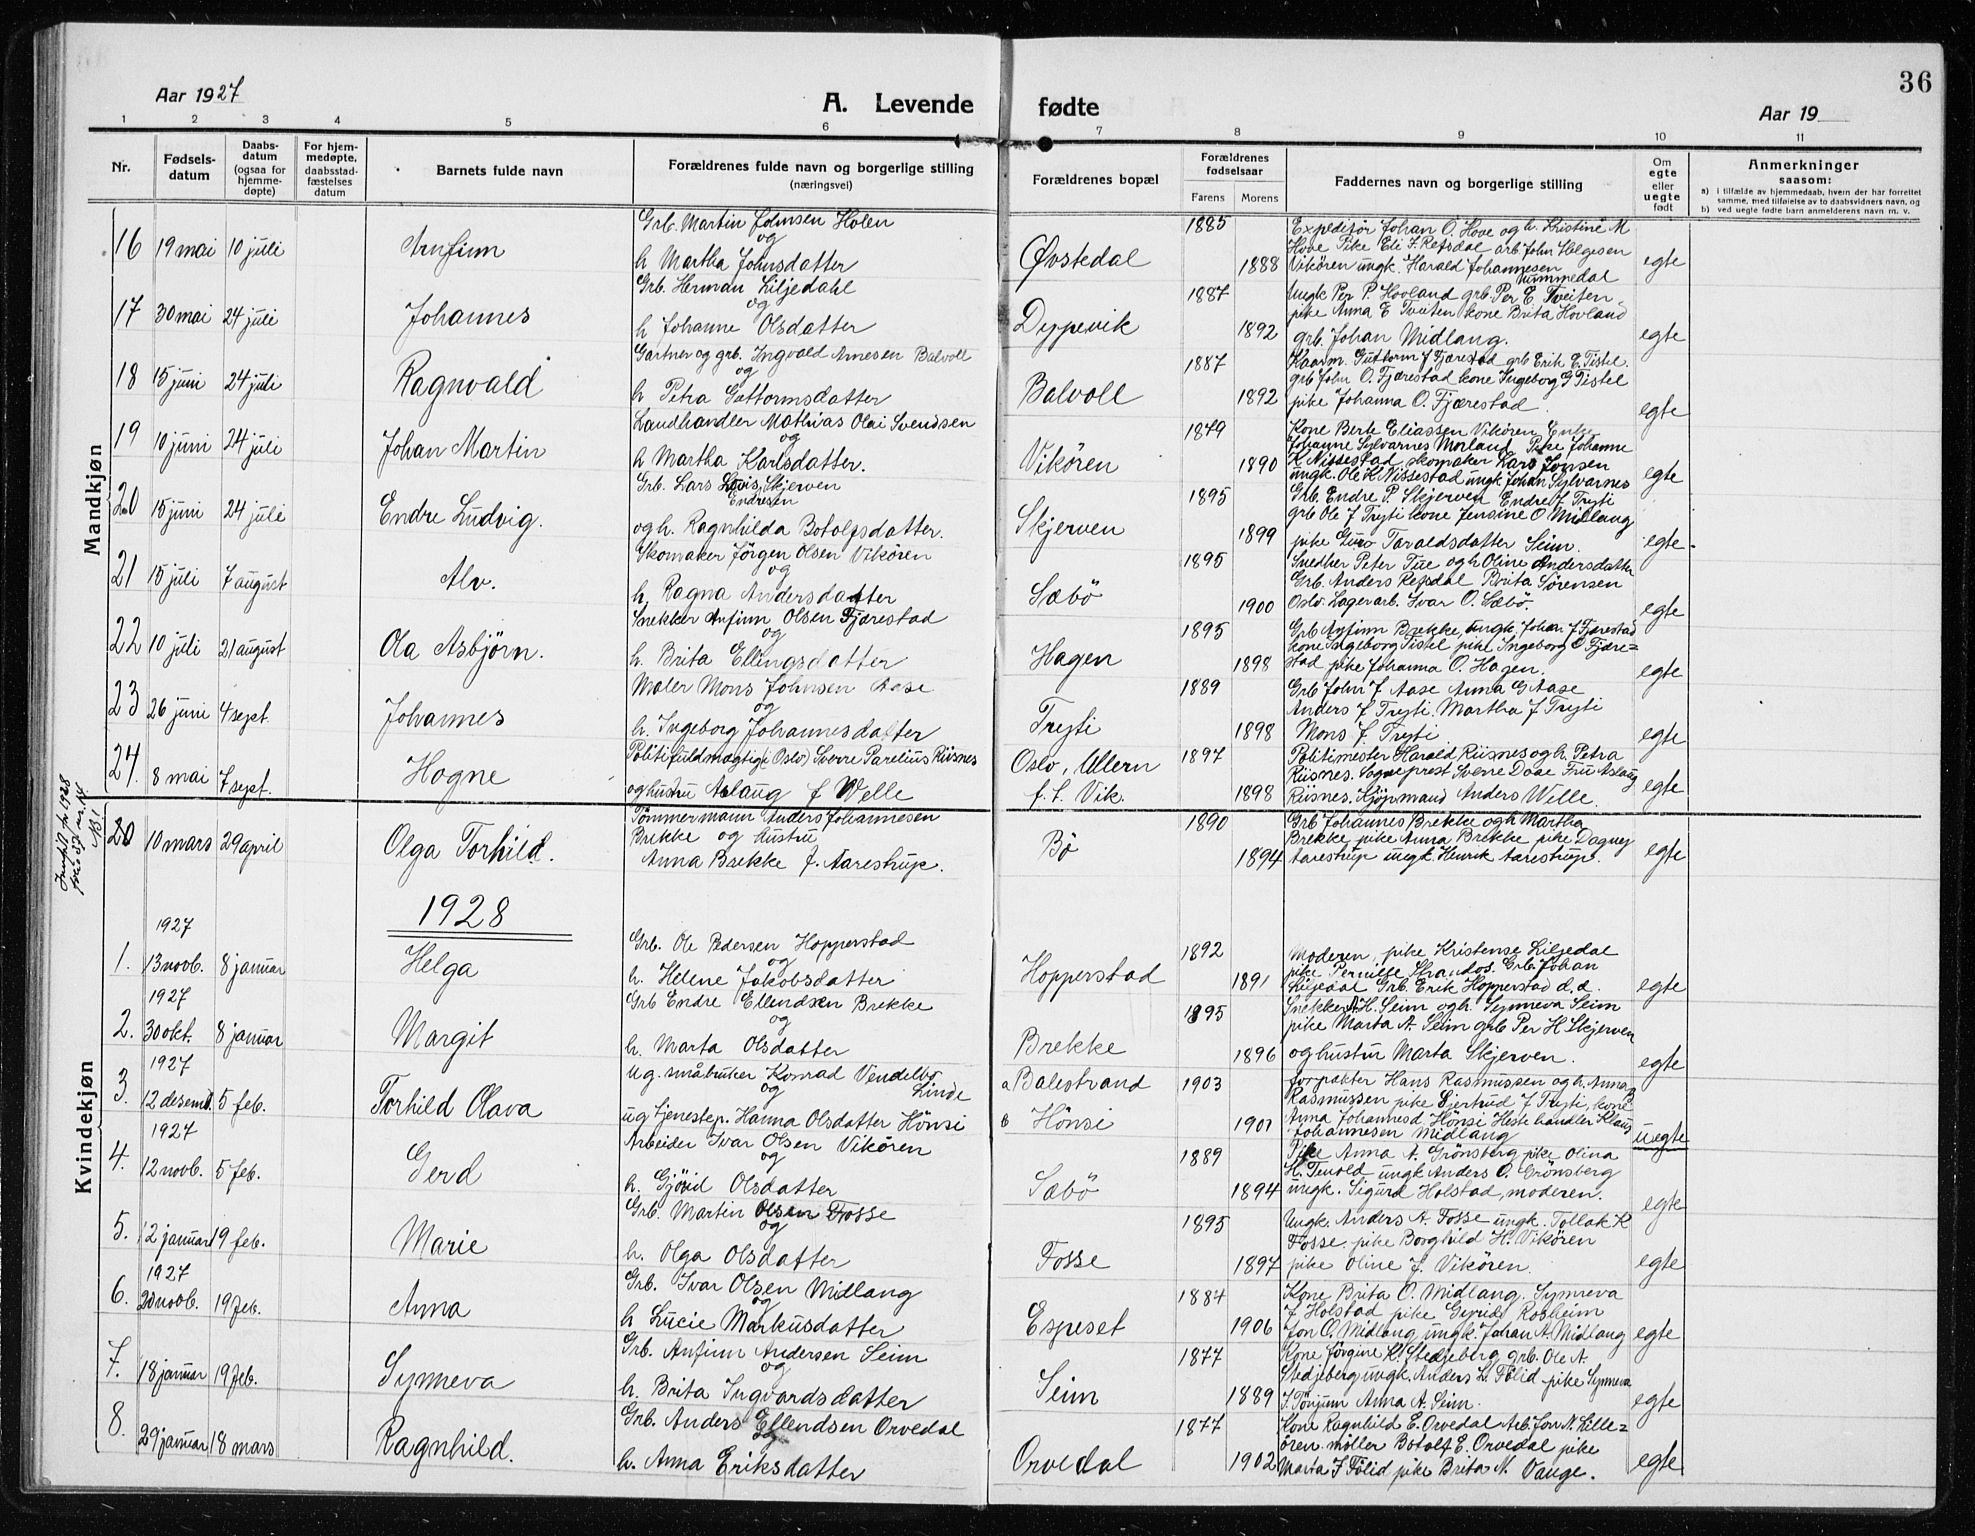 36
Aar 1927
A. Levende fødte
Aar 19
1 2 3 4 5 6 7 8 9 10 11
Nr.
Fødsels-
datum
Daabs-
datum
(ogsaa for
hjemme-
døpte)
For hjem-
medøpte,
daabsstad-
fæstelses
datum
Barnets fulde navn
Forældrenes fulde navn og borgerlige stilling
(næringsvei)
Forældrenes bopæl
Forældrenes
fødselsaar
Farens Morens
Faddernes navn og borgerlige stilling
Om
egte
eller
uegte
født
Anmerkninger
saasom:
a) i tilfælde av hjemmedaab, hvem der har forrettet
samme, med tilføielse av to daabsvidners navn, og
b) ved uegte fødte barn anmelderens navn m. v.
Mandkjøn
16 19 mai 10 juli Arnfinn
Grb. Martin Johnsen Holen
og
h. Martha Johnsdatter
Øvstedal 1885 1888
Expeditør Johan O. Hove og h. Kristine M
Hove Pike Eli J. Refsdal arb John Helgesen
Vikören ungk. Harald Johannesen
Hummedal
egte
17 30 mai 24 juli Johannes
Grb. Herman Liljedahl
og
h Johanne Olsdatter
Dyppevik 1887 1892
Ungk Per P. Hovland grb. Per E. Tveiten
pike Anna E Tveiten kone Brita Hovland
grb. Johan Midlang.
egte
18 15 juni 24 juli Ragnvald
Gartner og grb. Ingvald Arnesen Balvoll
og
h Petra Guttormsdatter
Balvoll 1887 1892
Kaarm. Guttorm J Fjærestad grb Erik E. Tistel.
grb John O. Fjærestad kone Ingeborg G Tistel
pike Johanna O. Fjærestad.
egte
19 10 juni 24 juli Johan Martin
Landhandler Mathias Olai Svendsen
og
h Martha Karlsdatter.
Vikören 1879 1890
Kone Berte Eliassen Vikören Enke
Johanne Sylvarnes Morland Pike Johanne
K Nissestad skomaker Lars Jonsen
ungk. Ole K Nissestad ungk Johan Sylvarnes
egte
20 15 juni 24 juli Endre Ludvig.
Grb. Lars Lovis Skjerven
Endresen
og h. Ragnhilda Botolfsdatter.
Skjerven 1895 1899
Grb. Endre P. Skjerven Endre J Tryti
grb Ole J Tryti kone Jensine O Midlang
pike Guro Taraldsdatter Seim.
egte.
21 15 juli 7 august Alv.
Skomaker Jørgen Olsen Vikören
og
h. Ragna Andersdatter
Sæbö 1895 1900
Snedker Peter Tue og h Oline Andersdatter
Grb. Anders Refsdal Brita Sørensen
Oslo. Lagerarb. Ivar O. Sæbö.
egte
22 10 juli 21 august Ola Asbjørn.
Snekker Anfinn Olsen Fjærestad
og
h. Brita Ellingsdatter
Hagen 1895 1898
Grb Anfinn Brekke, ungk. Johan J Fjærestad
kone Ingeborg Tistel pike Ingeborg O Fjære=
stad pike Johanna O. Hagen.
egte
23 26 juni 4 sept. Johannes
Maler Mons Johnsen Aase
og
h. Ingeborg Johannesdatter
Tryti 1889 1898
Grb John J Aase Anna G Aase
Anders J Tryti. Martha J Tryti
Mons J. Tryti
egte
24. 8 mai 7 sept. Hogne
Politifuldmægtig (Oslo) Sverre Parelius Riisnes
og hustru Aslaug f Welle
Oslo, Ullern
f. t. Vik. 1897 1898
Politimester Harald Riisnes og h. Petra
Riisnes. Sogneprest Sverre Daae Fru Aslaug
Riisnes. Kjøpmand Anders Welle.
egte
NB!
20 10 mars 29 april Olga Torhild.
Tömmermann Anders Johannesen
Brekke og hustru
Anna Brekke f. Aarestrup.
Bö 1890 1894
Grb Johannes Brekke og h Martha
Brekke pike Anna Brekke pike Dagny
Aarestrup ungk. Henrik Aarestrup.
egte
1928
Kvindekjøn
1. 1927
13 novb. 8 januar Helga
Grb. Ole Pedersen Hopperstad
og
h. Helene Jakobsdatter
Hopperstad 1892 1891
Moderen, pike Kristense Liljedal
pike Pernille Strandos. Grb. Johan
Liljedal Grb. Erik Hopperstad d. d.
egte
2. 1927
30 okt. 8 januar Margit
Grb Endre Ellendsen Brekke
og
h. Marta Olsdatter
Brekke 1895 1896
Snekker A. H. Seim og h. Synneva Seim
pike Marta A. Seim grb Per H Skjerven
og hustru Marta Skjerven.
egte
3. 1927
12 desemb. 5 feb. Torhild Olava
Ug. småbruker Konrad Vendelbo
og Linde
ug tjenestep. Hanna Olsdatter Hönsi
a Balestrand
b Hönsi 1903 1901
forpakter Hans Rasmussen og h. Anna B
Rasmussen pike Gjertrud J Tryti, kone
Anna Johannesd Hönsi Hestehandler Klaus
Johannesen Midlang
uegte
4. 1927
12 novb. 5 feb. Gerd
Arbeider Ivar Olsen Vikören
og
h. Gjörid Olsdatter
Sæbö 1889 1894
Pike Anna A. Grönsberg pike Olina
H. Tenold ungk Anders O. Grönsberg
ungk. Sigurd Holstad, moderen.
egte
5. 12 januar 19 feb. Marie
Grb. Martin Olsen Fosse
og
h. Olga Olsdatter
Fosse 1895 1897
Ungk. Anders A. Fosse ungk. Tollak K
Fosse. pike Borghild H. Vikören
pike Oline J. Vikören.
egte
6. 1927
20 novb. 19 feb. Anna
Grb. Ivar Olsen Midlang
og
h Lucie Markusdatter
Espeset 1884 1906
Kone Brita O. Midlang. Synneva
J Holstad pike Gyrid Rosheim
Jon O. Midlang ungk. Johan A. Midlang
egte
7. 18 januar 19 feb. Synneva
Grb. Anfinn Andersen Seim
og
h. Brita Ingvardsdatter
Seim 1877 1889
Kone Jörgine K. Stedjeberg grb. Ole A.
Stedjeberg ungk. Anders L. Fölid pike Synneva
J. Tönjum Anna A. Seim.
egte
8. 29 januar 18 mars Ragnhild.
Grb. Anders Ellendsen Orvedal
og
h. Anna Eriksdatter
Orvedal 1877 1902
Kone Ragnhild E. Orvedal Arb. Jon N. Lille=
ören. möller Botolf E. Orvedal pike
Marta J Fölid pike Brita N. Vange.
egte